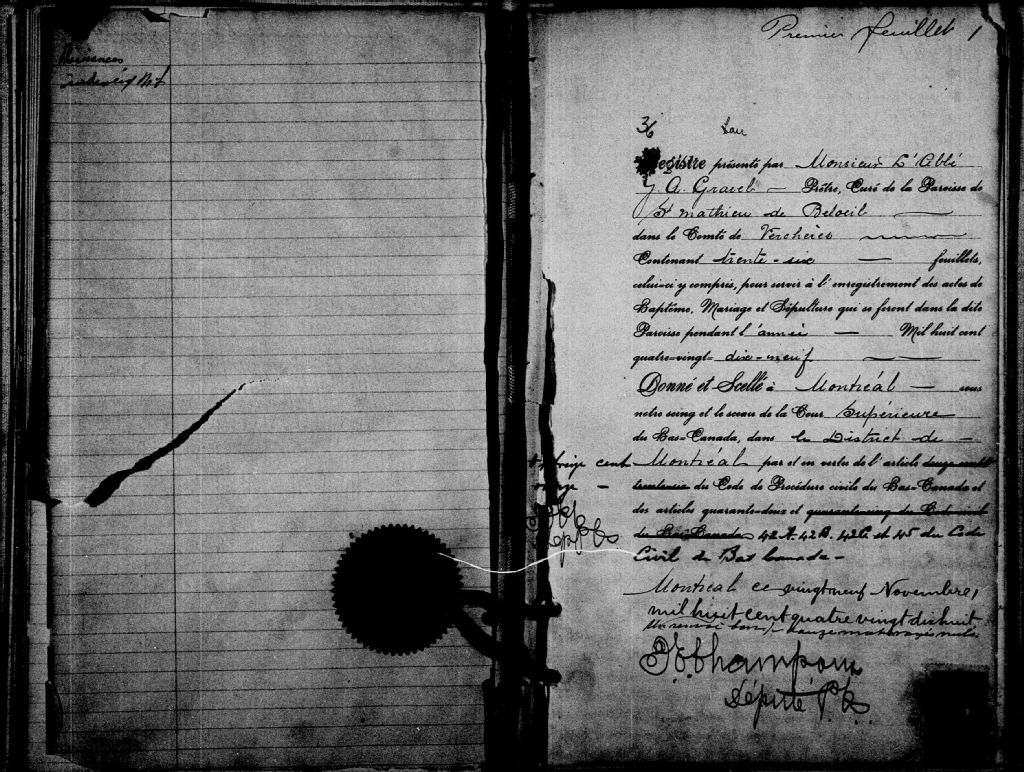 Premier feuillet 1
36
Registre présenté par Monsieur L'abbé
J A. Gravel – Prêtre, Curé de la Paroisse de
St mathieu de Beloeil
dans le Comté de Verchères
Contenant trente-six — feuillets,
celui-ci y compris, pour servir à l'enregistrement des actes de
Baptême, Mariage et Sépulture qui se feront dans la dite
Paroisse pendant l'année — Mil huit cent
quatre-vingt-dix-neuf
Donné et Scellé à Montréal — sous
notre seing et le sceau de la Cour Supérieure
du Bas-Canada, dans le District de –
treize cent
onze –
Montréal par et en vertu de l'article douze cent
trente-six du Code de Procédure civile du Bas-Canada et
des articles quarante-deux et quarante-cinq du Code civil
du Bas-Canada 42A. 42B. 42C et 45 du Code
Civil du Bas Canada –
Montréal ce vingtneuf Novembre,
mil huit cent quatre vingt dixhuit
Un renvoi bon, onze mots rayés nuls.
Député P.